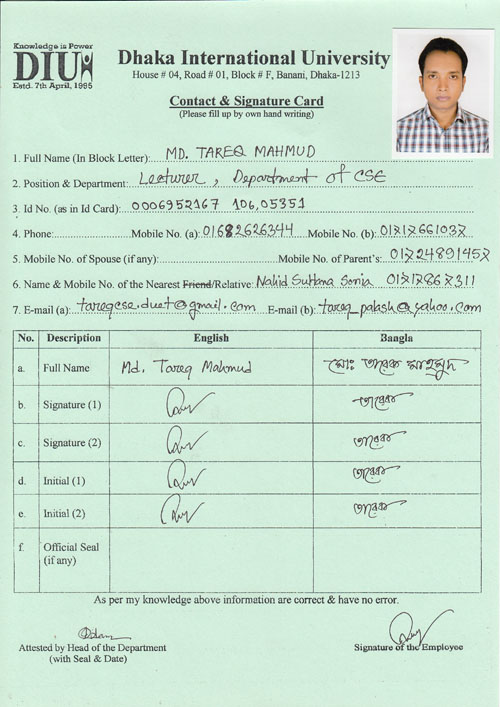 Knowledge is Power
DIU
Estd. 7th April, 1995
Dhaka International University
House # 04, Road # 01, Block # F, Banani, Dhaka-1213
Contact & Signature Card
(Please fill up by own hand writing)
1. Full Name (In Block Letter): MD. TAREQ MAHMUD
2. Position & Department: Lecturer, Department of CSE
3. Id No. (as in Id Card): 0006952167 106,05351
4. Phone: Mobile No. (a): 01682626344 Mobile No. (b): 01717661037
5. Mobile No. of Spouse (if any): Mobile No. of Parent's: 01724891457
6. Name & Mobile No. of the Nearest Friend/Relative: Nahid Sultana Sonia 01717867311
7. E-mail (a): tareqcse.duet@gmail.com E-mail (b): tareq_palash@yahoo.com
No. Description English Bangla
a. Full Name Md. Tareq Mahmud মোঃ তারেক মাহমুদ
b. Signature (1) তারেক
c. Signature (2) তারেক
d. Initial (1) তারেক
e. Initial (2) তারেক
f. Official Seal
(if any)
As per my knowledge above information are correct & have no error.
Attested by Head of the Department
(with Seal & Date)
Signature of the Employee